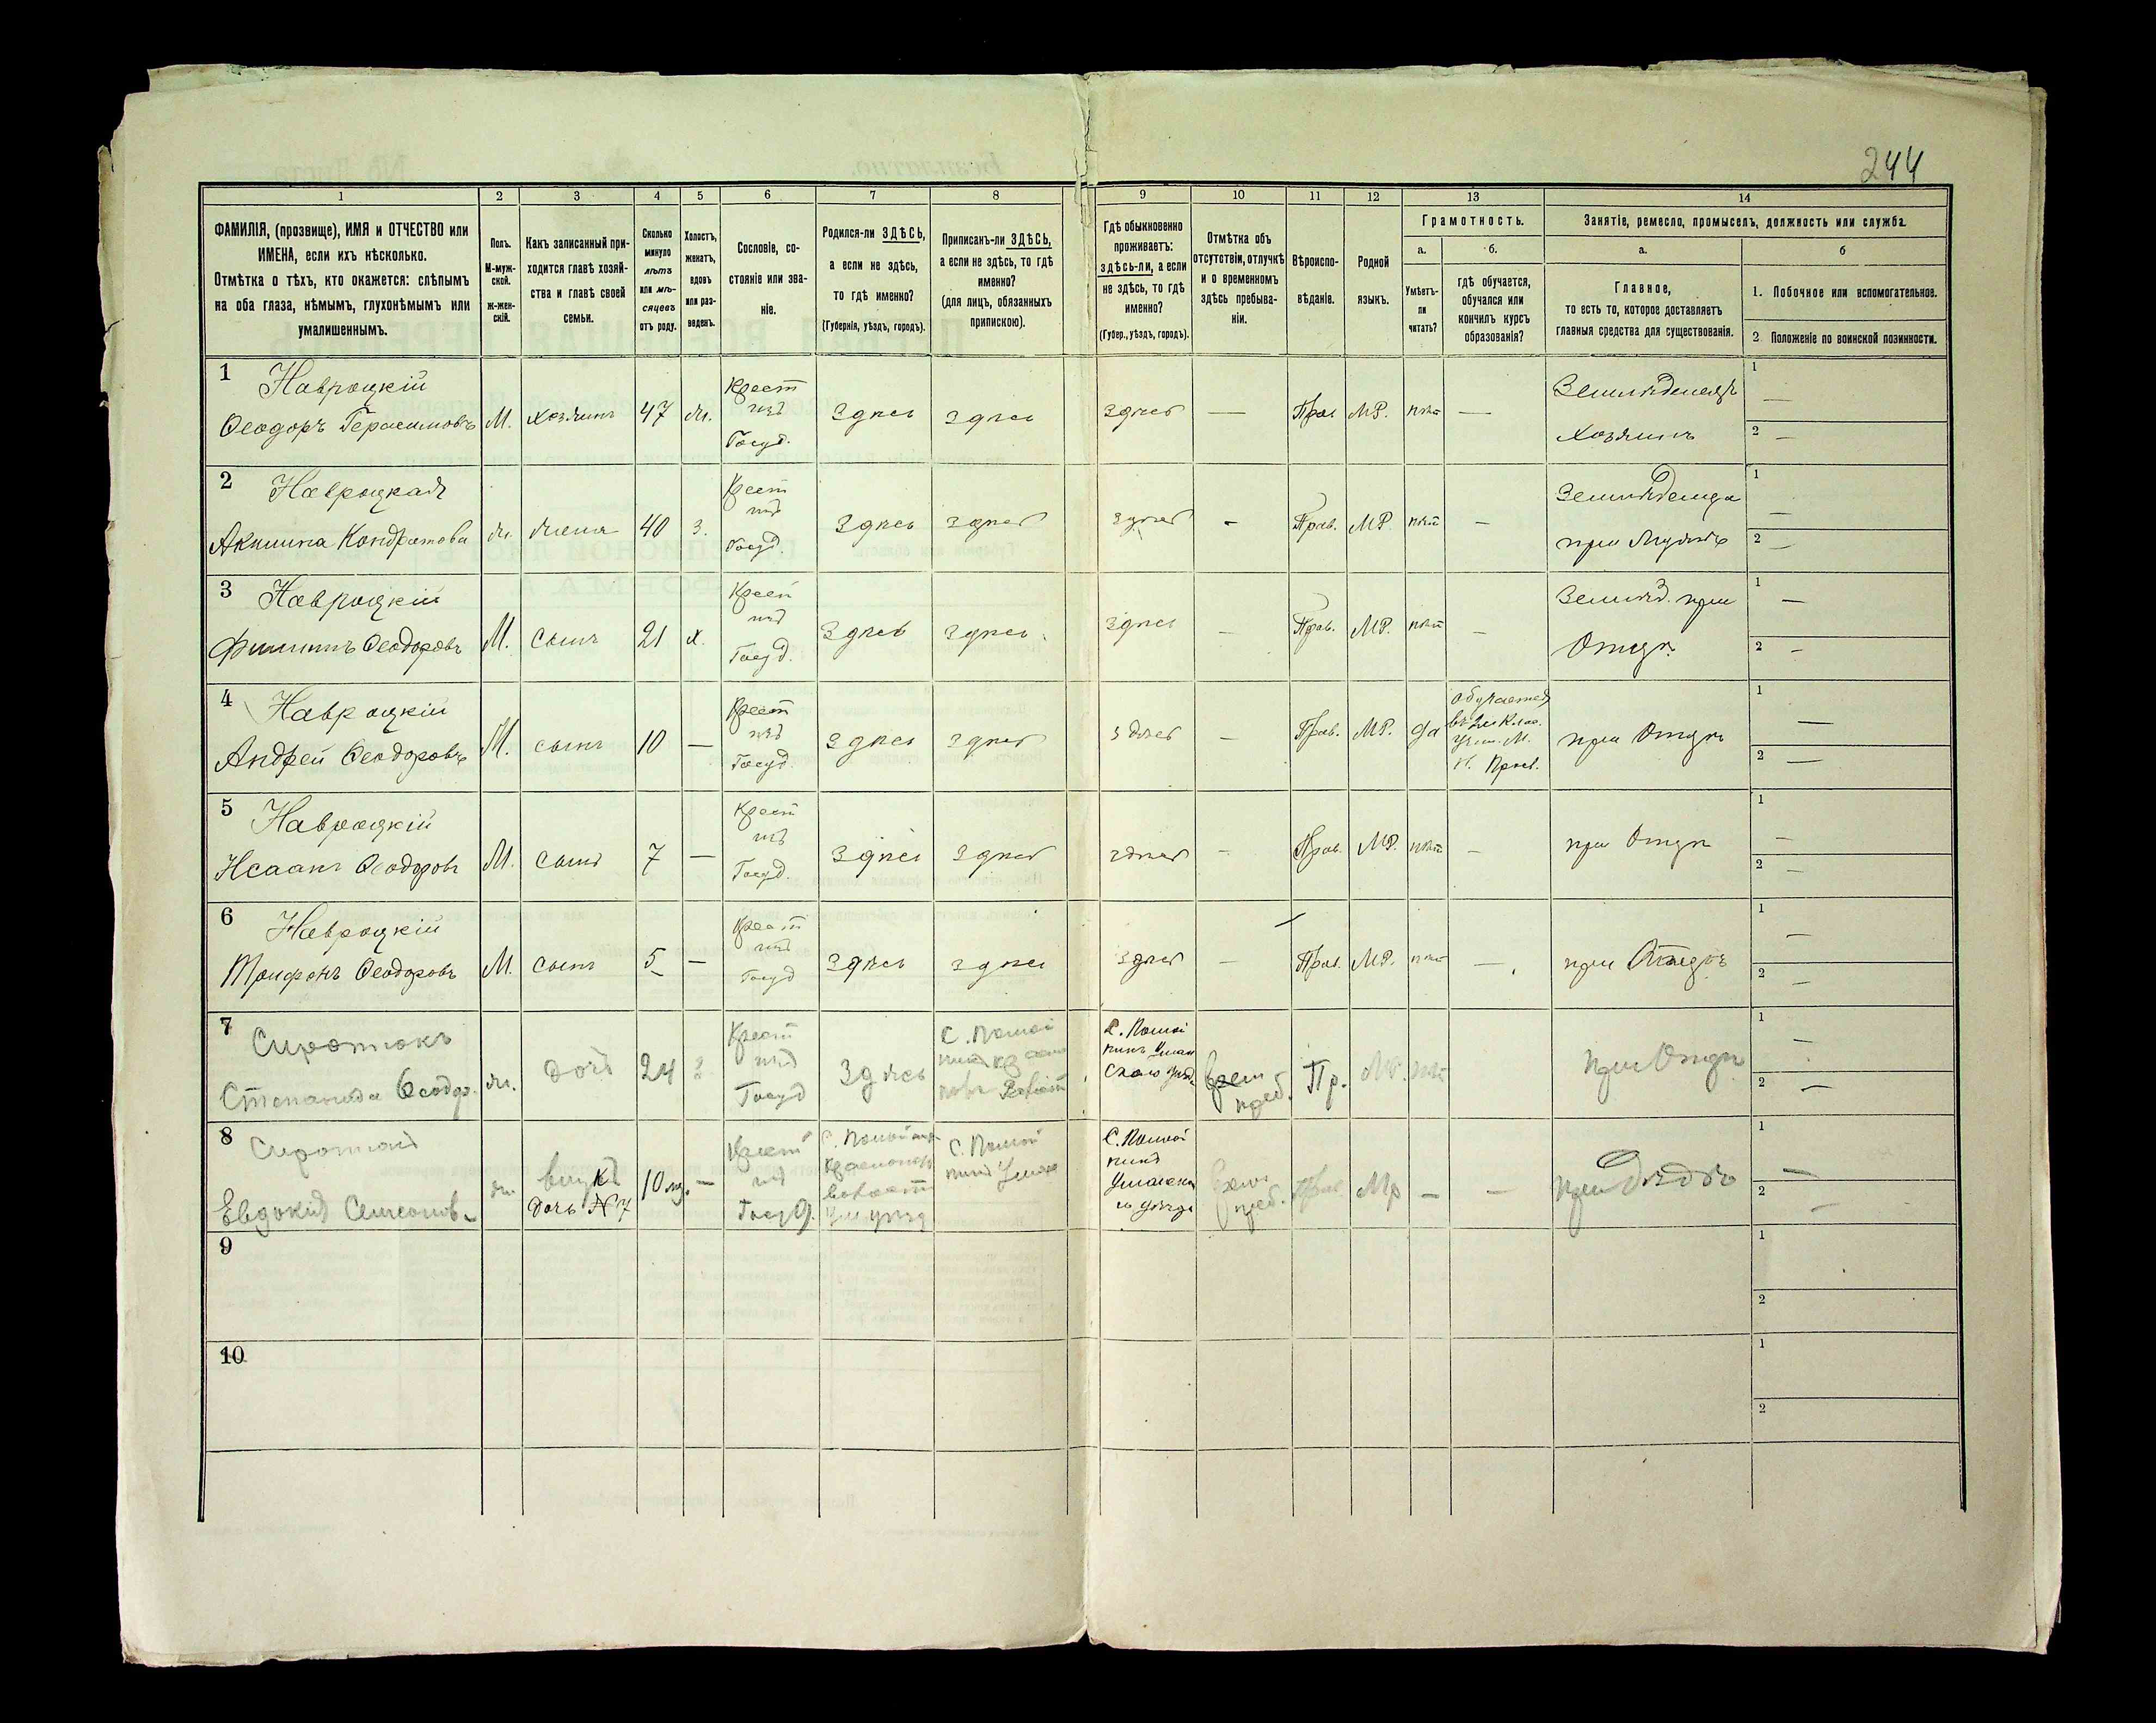 244
1
2
3
4
5
6
7
8
9
10
11
12
13
14
ФАМИЛІЯ, (прозвище), ИМЯ и ОТЧЕСТВО или
ИМЕНА, если ихъ нѣсколько.
Отмѣтка о тѣхъ, кто окажется: слѣпымъ
на оба глаза, нѣмымъ, глухонѣмымъ или
умалишеннымъ.
Полъ.
М-муж-
ской.
ж-жен-
скій.
Какъ записанный при-
ходится главѣ хозяй-
ства и главѣ своей
семьи.
Сколько
минуло
лѣтъ
или мѣ-
сяцевъ
отъ роду.
Холостъ,
женатъ,
вдовъ
или раз-
веденъ.
Сословіе, со-
стояніе или зва-
ніе.
Родился-ли ЗДѢСЬ,
а если не здѣсь,
то гдѣ именно?
(Губернія, уѣздъ, городъ).
Приписанъ-ли ЗДѢСЬ,
а если не здѣсь, то гдѣ
именно?
(для лицъ, обязанныхъ
припискою).
Гдѣ обыкновенно
проживаетъ:
здѣсь-ли, а если
не здѣсь, то гдѣ
именно?
(Губер., уѣздъ, городъ).
Отмѣтка объ
отсутствіи, отлучкѣ
и о временномъ
здѣсь пребыва-
ніи.
Вѣроиспо-
вѣданіе.
Родной
языкъ.
Грамотность.
а.
б.
Умѣетъ-
ли
читать?
гдѣ обучается,
обучался или
кончилъ курсъ
образованія?
Занятіе, ремесло, промыселъ, должность или служба.
а.
б
Главное,
то есть то, которое доставляетъ
главныя средства для существованія.
1. Побочное или вспомогательное.
2 Положеніе по воинской повинности.
1 Навроцкій
Ѳеодоръ Герасимовъ
М.
хозяинъ
47
ж.
Крест
изъ
Госуд.
Здѣсь
здѣсь
здѣсь
—
Прав
МР.
нѣт
—
Земледелецъ
хозяинъ
1 —
2 —
2 Навроцкая
Акилина Кондратова
ж.
жена
40
з.
Крест
изъ
Госуд.
Здѣсь
здѣсь
здѣсь
-
Прав.
МР.
нѣт
-
при мужѣ
1 —
2 —
3 Навроцкій
Филиппъ Ѳеодоровъ
М.
сынъ
21
х.
Крест
изъ
Госуд.
Здѣсь
здѣсь
здѣсь
-
Прав.
МР.
нѣт
-
Землед. при
Отцѣ
1 —
2 -
4 Навроцкій
Андрей Ѳеодоровъ
М.
сынъ
10
—
Крест
изъ
Госуд.
здѣсь
здѣсь
здѣсь
-
Прав.
МР.
да
Обучается
Учил. М.
Н. Просв.
при Отцѣ
1 —
2 —
5 Навроцкій
Исаакъ Ѳеодоровъ
М.
сынъ
7
—
Крест
изъ
Госуд.
Здѣсь
здѣсь
здѣсь
-
Прав.
МР.
нѣт
-
при Отцѣ
1 —
2 —
6 Навроцкій
Трифонъ Ѳеодоровъ
М.
сынъ
5
—
Крест
изъ
Госуд
Здѣсь
здѣсь
здѣсь
—
Прав.
МР.
нѣт
—
при Отцѣ
1 —
2 —
7 Сиротюкъ
Степанида Ѳеодор.
ж.
дочь
24
з.
Крест
изъ
Госуд
Здѣсь
врем
преб.
Пр.
МР.
нѣт
при Отцѣ
1 —
2 —
8
Евдокія
ж.
внука
дочь №7
10 м.
—
Крест
изъ
Госуд.
преб.
Прав
Мр
—
—
при дѣдѣ
1 —
2 —
9
1
2
10
1
2